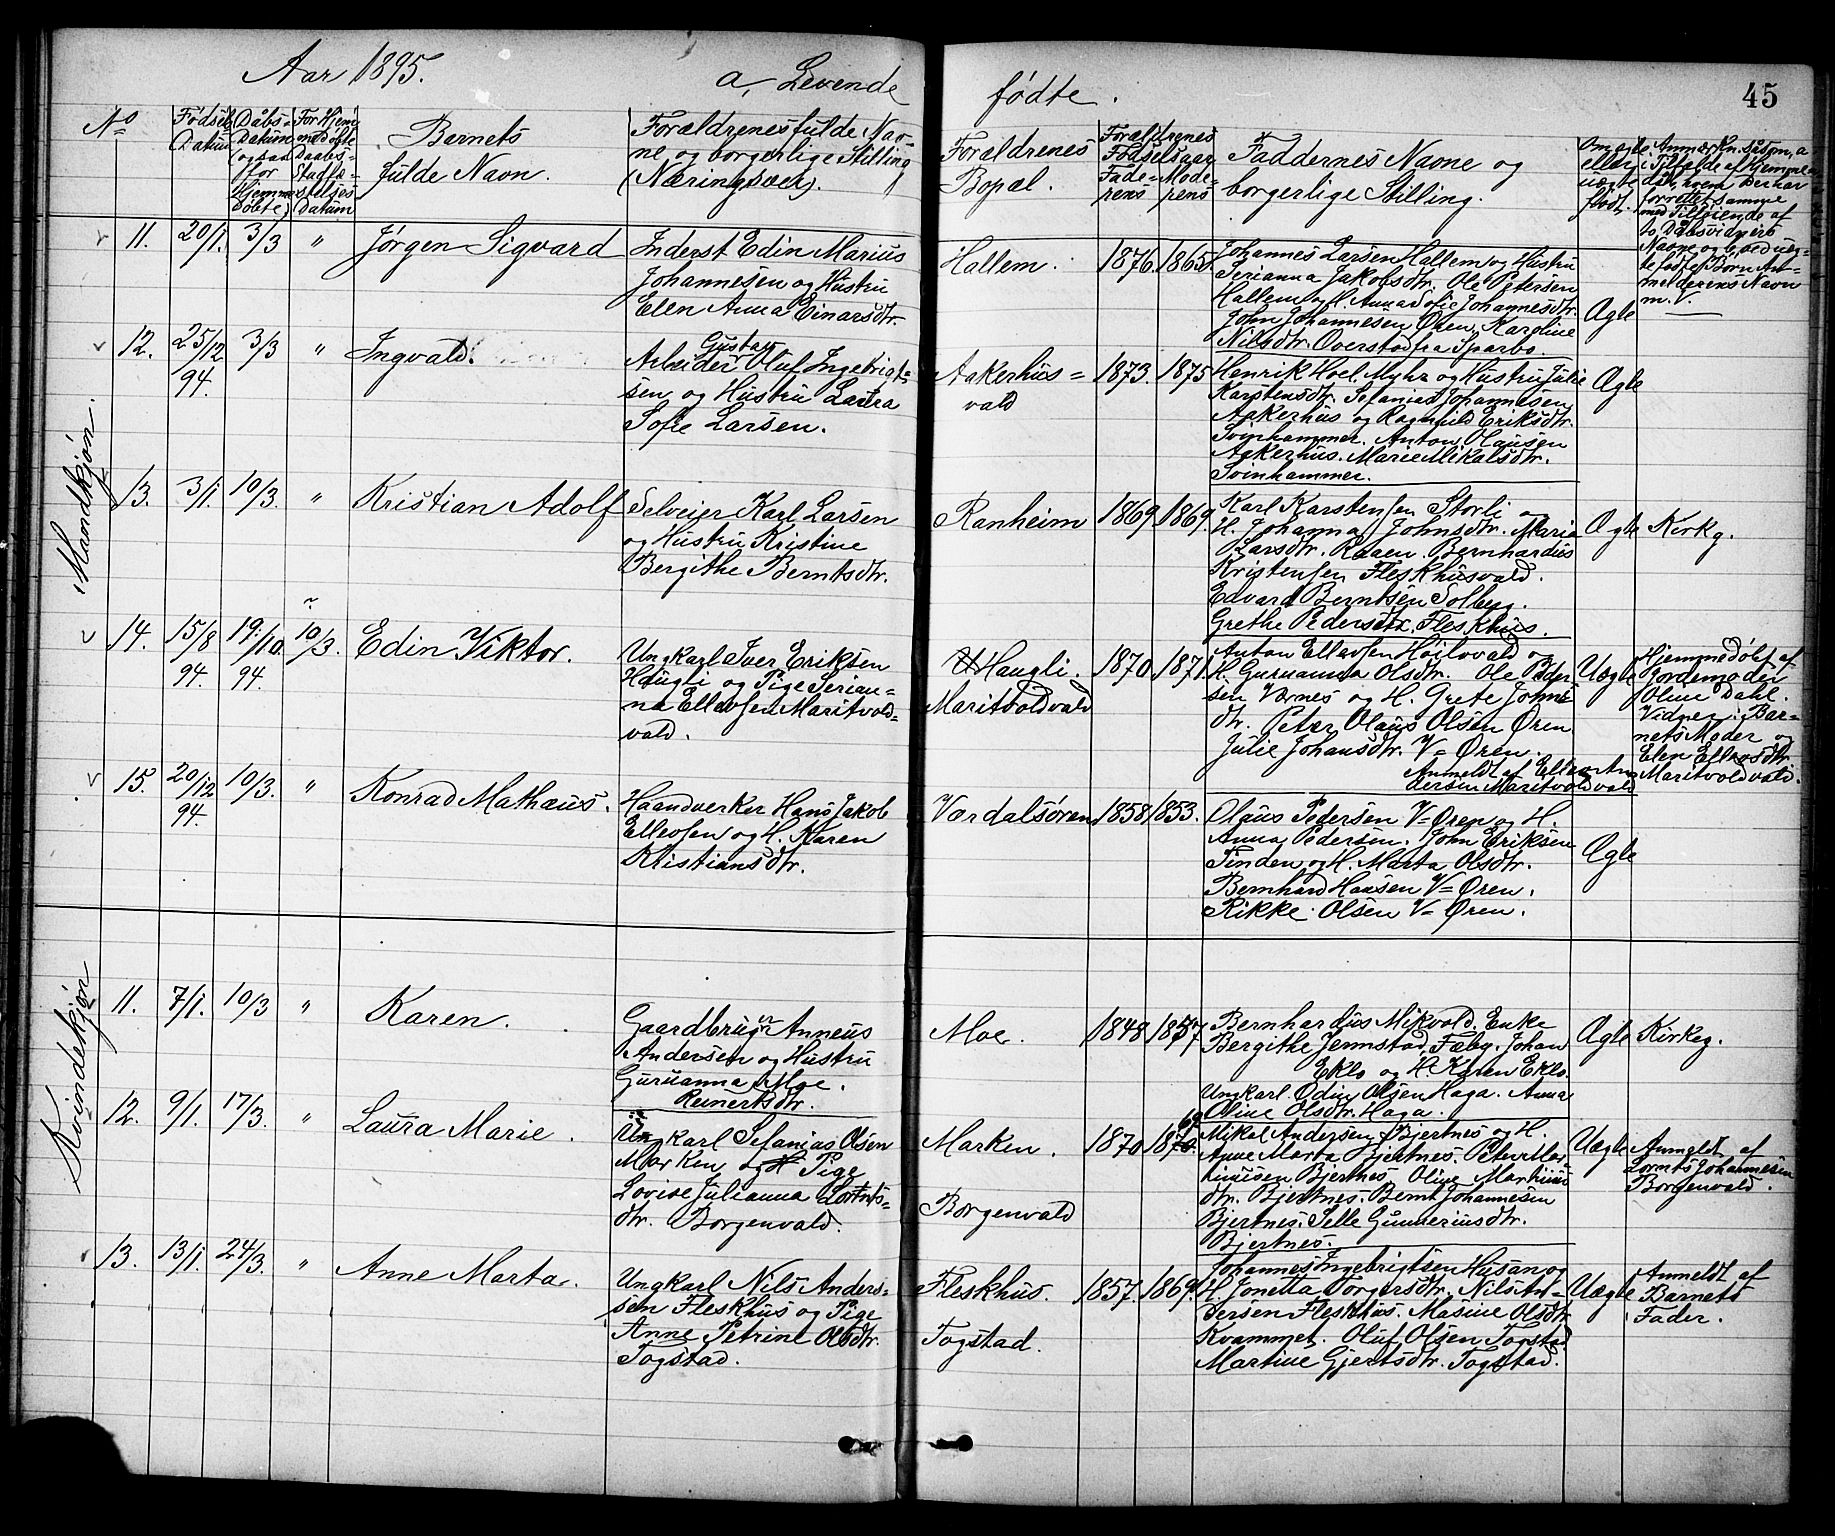 Aar 1895. a, Levende
No
Fødsels Datum
Dåbs-Datum (ogsaa for Hjemmedøbte)
For Hjemmedøbte Daabs-Stadfæstelses Datum
Barnets fulde Navn.
Forældrenes fulde Navne og borgerlige Stilling (Næringsvei).
Mandkjøn.
11. 20/1. 3/3 " Jørgen Sigvard
Inderst Edin Marius
Johannesen og Hustru
Elen Anna Einarsdtr.
12. 25/12 94. 3/3 " Ingvald.
Gustav
Arbeider Oluf Ingebrigt-
sen og Hustru Laura
Sofie Larsen.
13. 3/1. 10/3. " Kristian Adolf
Selveier Karl Larsen
og Hustru Kristine
Bergithe Berntsdtr.
14. 15/8 94. 19./10 94. 10/3. Edin Viktor.
Ungkarl Iver Eriksen
Haugli og Pige Serian-
na Ellevsen Maritvold-
vald.
15. 20/12 94. 10/3. " Konrad Mathæus.
Haandverker Hans Jakob
Ellevsen og H. Karen
Kristiansdtr.
Kvindekjøn
11. 7/1. 10/3 " Karen.
Gaardbruger Anneus
Andersen og Hustru
Guruanna Moe.
Reinertsdtr.
12. 9/1. 17/3. " Laura Marie.
Ungkarl Sefanias Olsen
Marken og Pige
Lovise Julianna Lornts-
dtr. Borgenvald.
13. 13/1. 24/3. " Anne Marta.
Ungkarl Nils Anders-
sen Fleskhus og Pige
Anne Petrine Olsdtr.
Togstad.
fødte. 45
Forældrenes Bopæl.
Forældrenes Fødselsaar
Faderens Moderens
Faddernes Navne og
borgerlige Stilling.
Om ægte eller uægte født.
Hallem. 1876. 1865.
Johannes Larsen Hallem og Hustru
Serianna Jakobsdtr. Ole Petersen
Hallem og H. Annasofie Johannesdtr.
John Johannesen Øren, Karoline
Nilsdtr. Overstad fra Sparbo.
Ægte
Aakerhus=
vald
1873. 1875
Henrik Hoel Myhr og Hustru Julie
Karstensdtr. Sefanias Johannesen
Aakerhus og Ragnhild Eriksdtr.
Svinhammer. Anton Olausen
Aakerhus. Marie Mikalsdtr.
Svinhammer.
Ægte
Ranheim 1869. 1869.
Karl Karstensen Storli og
H. Johanna Johnsdtr. Maria
Larsdtr. Raaen. Bernhardus
Kristensen Fleskhusvald.
Edvard Berntsen Solberg.
Grethe Pedersdtr. Fleskhus.
Ægte Kirkg.
Haugli.
Maritvoldvald
1870. 1871.
Anton Ellevsen Høilovald og
H. Guruanna Olsdtr. Ole Peder
sen Vernes og H. Grete Johns
dtr. Peter Olaus Olsen Øren
Julie Johansdtr. V= Øren.
Anmeldt af Ellevs An
dersen Maritvoldvald
Uægte
Hjemmedøbt af
Jordemoder
Oline Dahl.
Vidner: Bar-
nets Moder og
Elen Ellevsdtr.
Maritvoldvald.
Værdalsøren 1858. 1853.
Olaus Pedersen V=Øren og H.
Anna Pedersen. John Eriksen
Tinden og H. Marta Olsdtr.
Bernhard Hansen V= Øren.
Rikke Olsen V= Øren.
Ægte
Moe. 1848 1857
Bernhardus Mikvold. Enke
Bergithe Jermstad, Fæby. Johan
Eklo og H. Karen Eklo.
Ungkarl Odin Olsen Haga. Anna
Oline Olsdtr. Haga.
Ægte Kirkeg.
Marken.
Borgenvald
1870
Mikal Andersen Bjertnes og H.
Ane Marta Bjertnes. Peter Mar
tinusen Bjertnes Oline Martinus
dtr. Bjertnes. Bernt Johannesen
Bjertnes. Selle Gunneriusdtr.
Bjertnes.
Uægte
Anmeldt af
Lornts Johannesen
Borgenvald.
Fleskhus.
Togstad.
1857. 1869.
Johannes Ingebrigtsen Husan og
H. Jonetta Torgersdtr. Nils An-
dersen Fleskhus. Masine Olsdtr
Kvammet. Oluf Olsen Togstad
Martine Gjertsdtr. Togstad.
Uægte
Anmeldt af
Barnets
Fader.